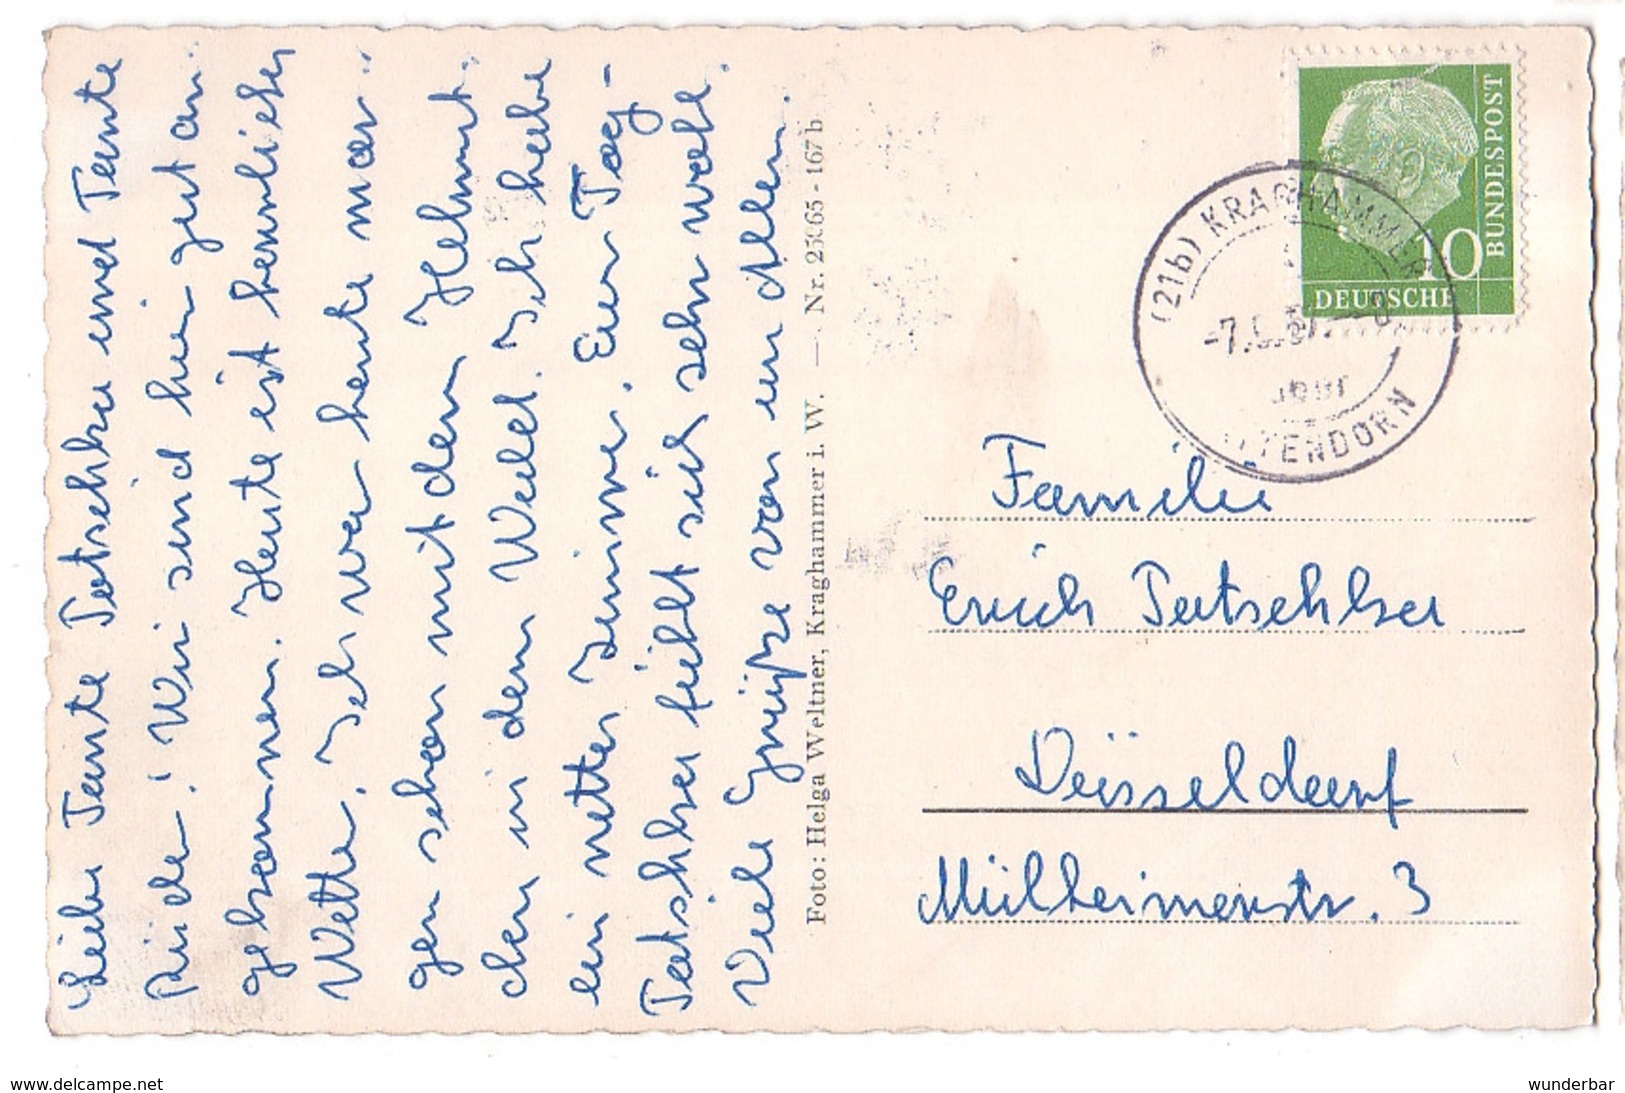 Liebe Tante Tatschker und Tante
Rüde! Wir sind hier gut an¨
gekommen. Heute ist herrliches
Wetter. Ich war heute mor¨
gen schon mit dem Helmut¨
chen in dem Wald. Ich habe
ein nettes Zimmer. Euer Tag-
Tatschker fühlt sich sehr wohl.
Viele Grüße von un Allen.
Foto: Helga Weltner, Kraghammer i. W. — Nr. 25065 - 167 b
DEUTSCHE
BUNDESPOST
10
(21b) KRAGHAMMER
-7. 57.
TENDORN
Familie
Erich Tatschker
Düsseldorf
Mülheimerstr. 3
www.delcampe.net
wunderbar